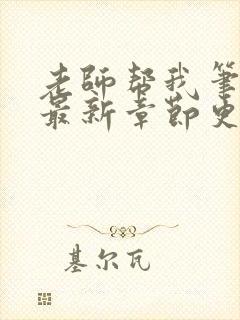 老师帮我筆
最新章节史
基尔瓦